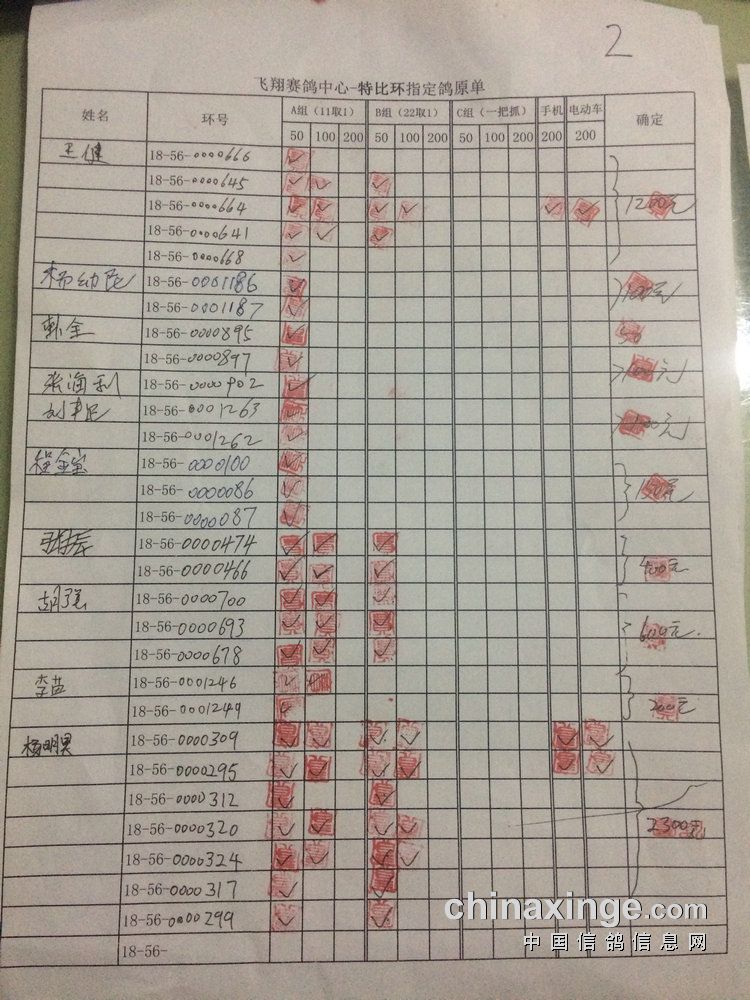 2
飞翔赛鸽中心-特比环指定鸽原单
姓名 环号 A组（11取1） B组（22取1） C组（一把抓） 手机 电动车 确定
50 100 200 50 100 200 50 100 200 200 200
王健 18-56-0000666 ✓
18-56-0000645 ✓ ✓ ✓
18-56-0000664 ✓ ✓ ✓ ✓ ✓ ✓ 1200元
18-56-0000641 ✓ ✓ ✓
18-56-0000668 ✓
18-56-0001186 ✓ 100元
18-56-0001187 ✓
韩全 18-56-0000895 ✓ 50
18-56-0000897 ✓ 100元
张渔利 18-56-0000902 ✓
18-56-0001263 ✓ 100元
18-56-0001262 ✓
程金宝 18-56-0000100 ✓
18-56-0000086 ✓ 150元
18-56-0000087 ✓
18-56-0000474 ✓ ✓ ✓
18-56-0000466 ✓ ✓ ✓ 400元
胡强 18-56-0000700 ✓ ✓ ✓
18-56-0000693 ✓ ✓ ✓ 600元
18-56-0000678 ✓ ✓ ✓
李苗 18-56-0001246 ✓
18-56-0001249 200元
杨明昊 18-56-0000309 ✓ ✓ ✓ ✓ ✓ ✓
18-56-0000295 ✓ ✓ ✓ ✓ ✓ ✓
18-56-0000312 ✓ ✓
18-56-0000320 ✓ ✓ ✓ ✓ 2300元
18-56-0000324 ✓ ✓ ✓ ✓
18-56-0000317 ✓ ✓
18-56-0000299 ✓ ✓
18-56-
chinaxinge.com
中国信鸽信息网